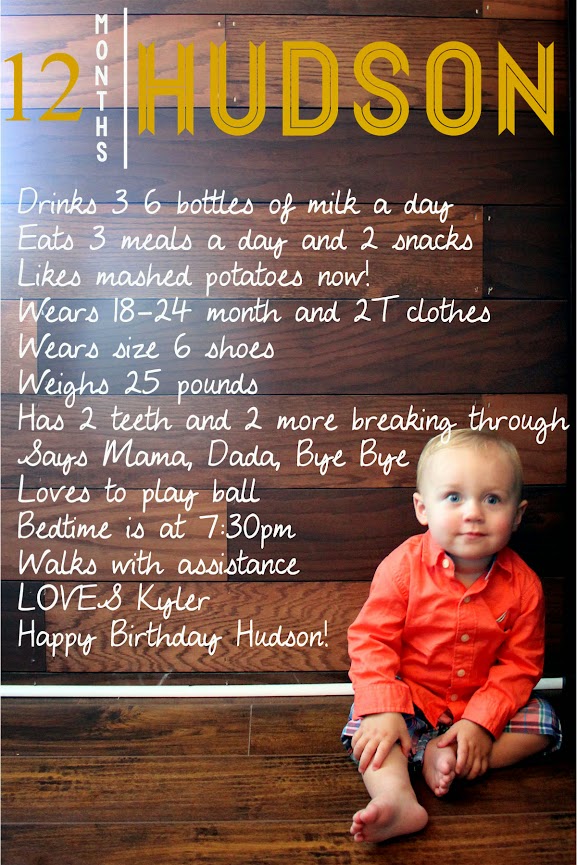 12 MONTHS HUDSON
Drinks 3 6 bottles of milk a day
Eats 3 meals a day and 2 snacks
Likes mashed potatoes now!
Wears 18-24 month and 2T clothes
Wears size 6 shoes
Weighs 25 pounds
Has 2 teeth and 2 more breaking through
Says Mama, Dada, Bye Bye
Loves to play ball
Bedtime is at 7:30pm
Walks with assistance
LOVES Kyler
Happy Birthday Hudson!